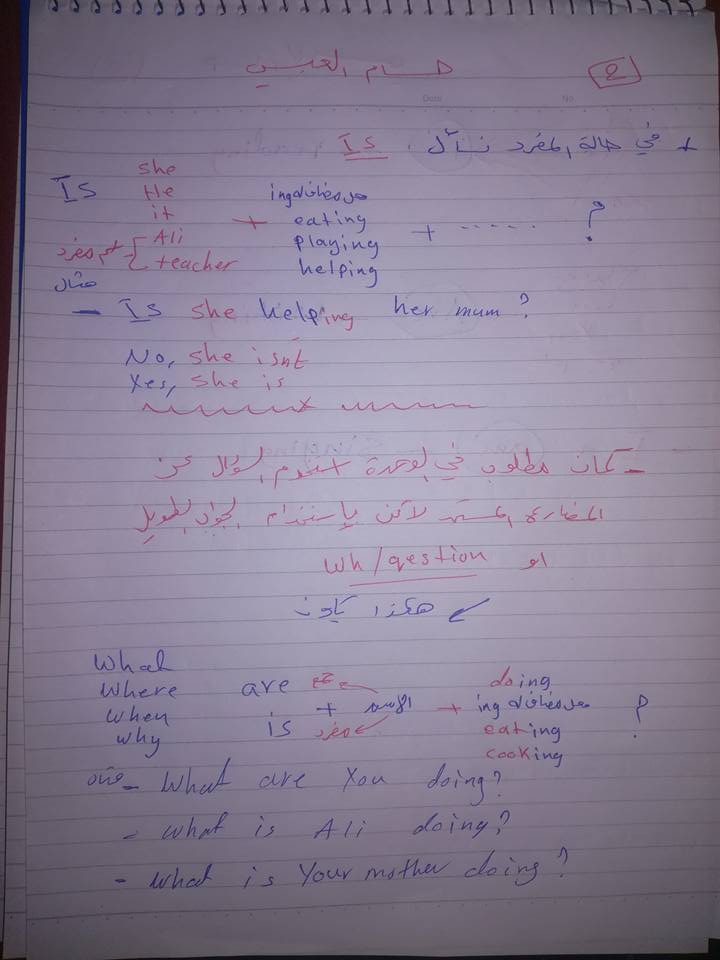 2
حسام العبسي
Date
No.
+ في حالة المفرد نسأل . Is
Is she
He
it
Ali
teacher
اسم مفرد
+
فعل مضاف له ing
eating
playing
helping
+ ...... ?
مثال
- Is she helping her mum?
No, she isnt
Yes, she is
- كمان مطلوب في الوحدة استخدم السؤال عن
المضارع المستمر لاكن بإستخدام الجواب الطويل
او Wh/qestion
هكذا يكون
What
Where
when
why
are
is
جمع
+ الاسم
مفرد
+
doing
فعل مضاف له ing
eating
cooking
?
مثال - What are You doing?
- what is Ali doing?
- what is Your mother doing?